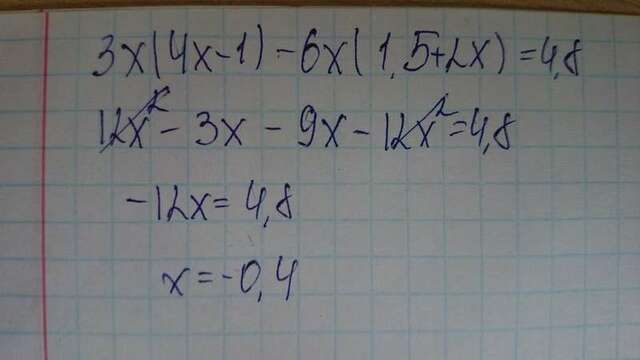 3x(4x-1)-6x(1,5+2x)=4,8
12x²-3x-9x-12x²=4,8
-12x=4,8
x=-0,4